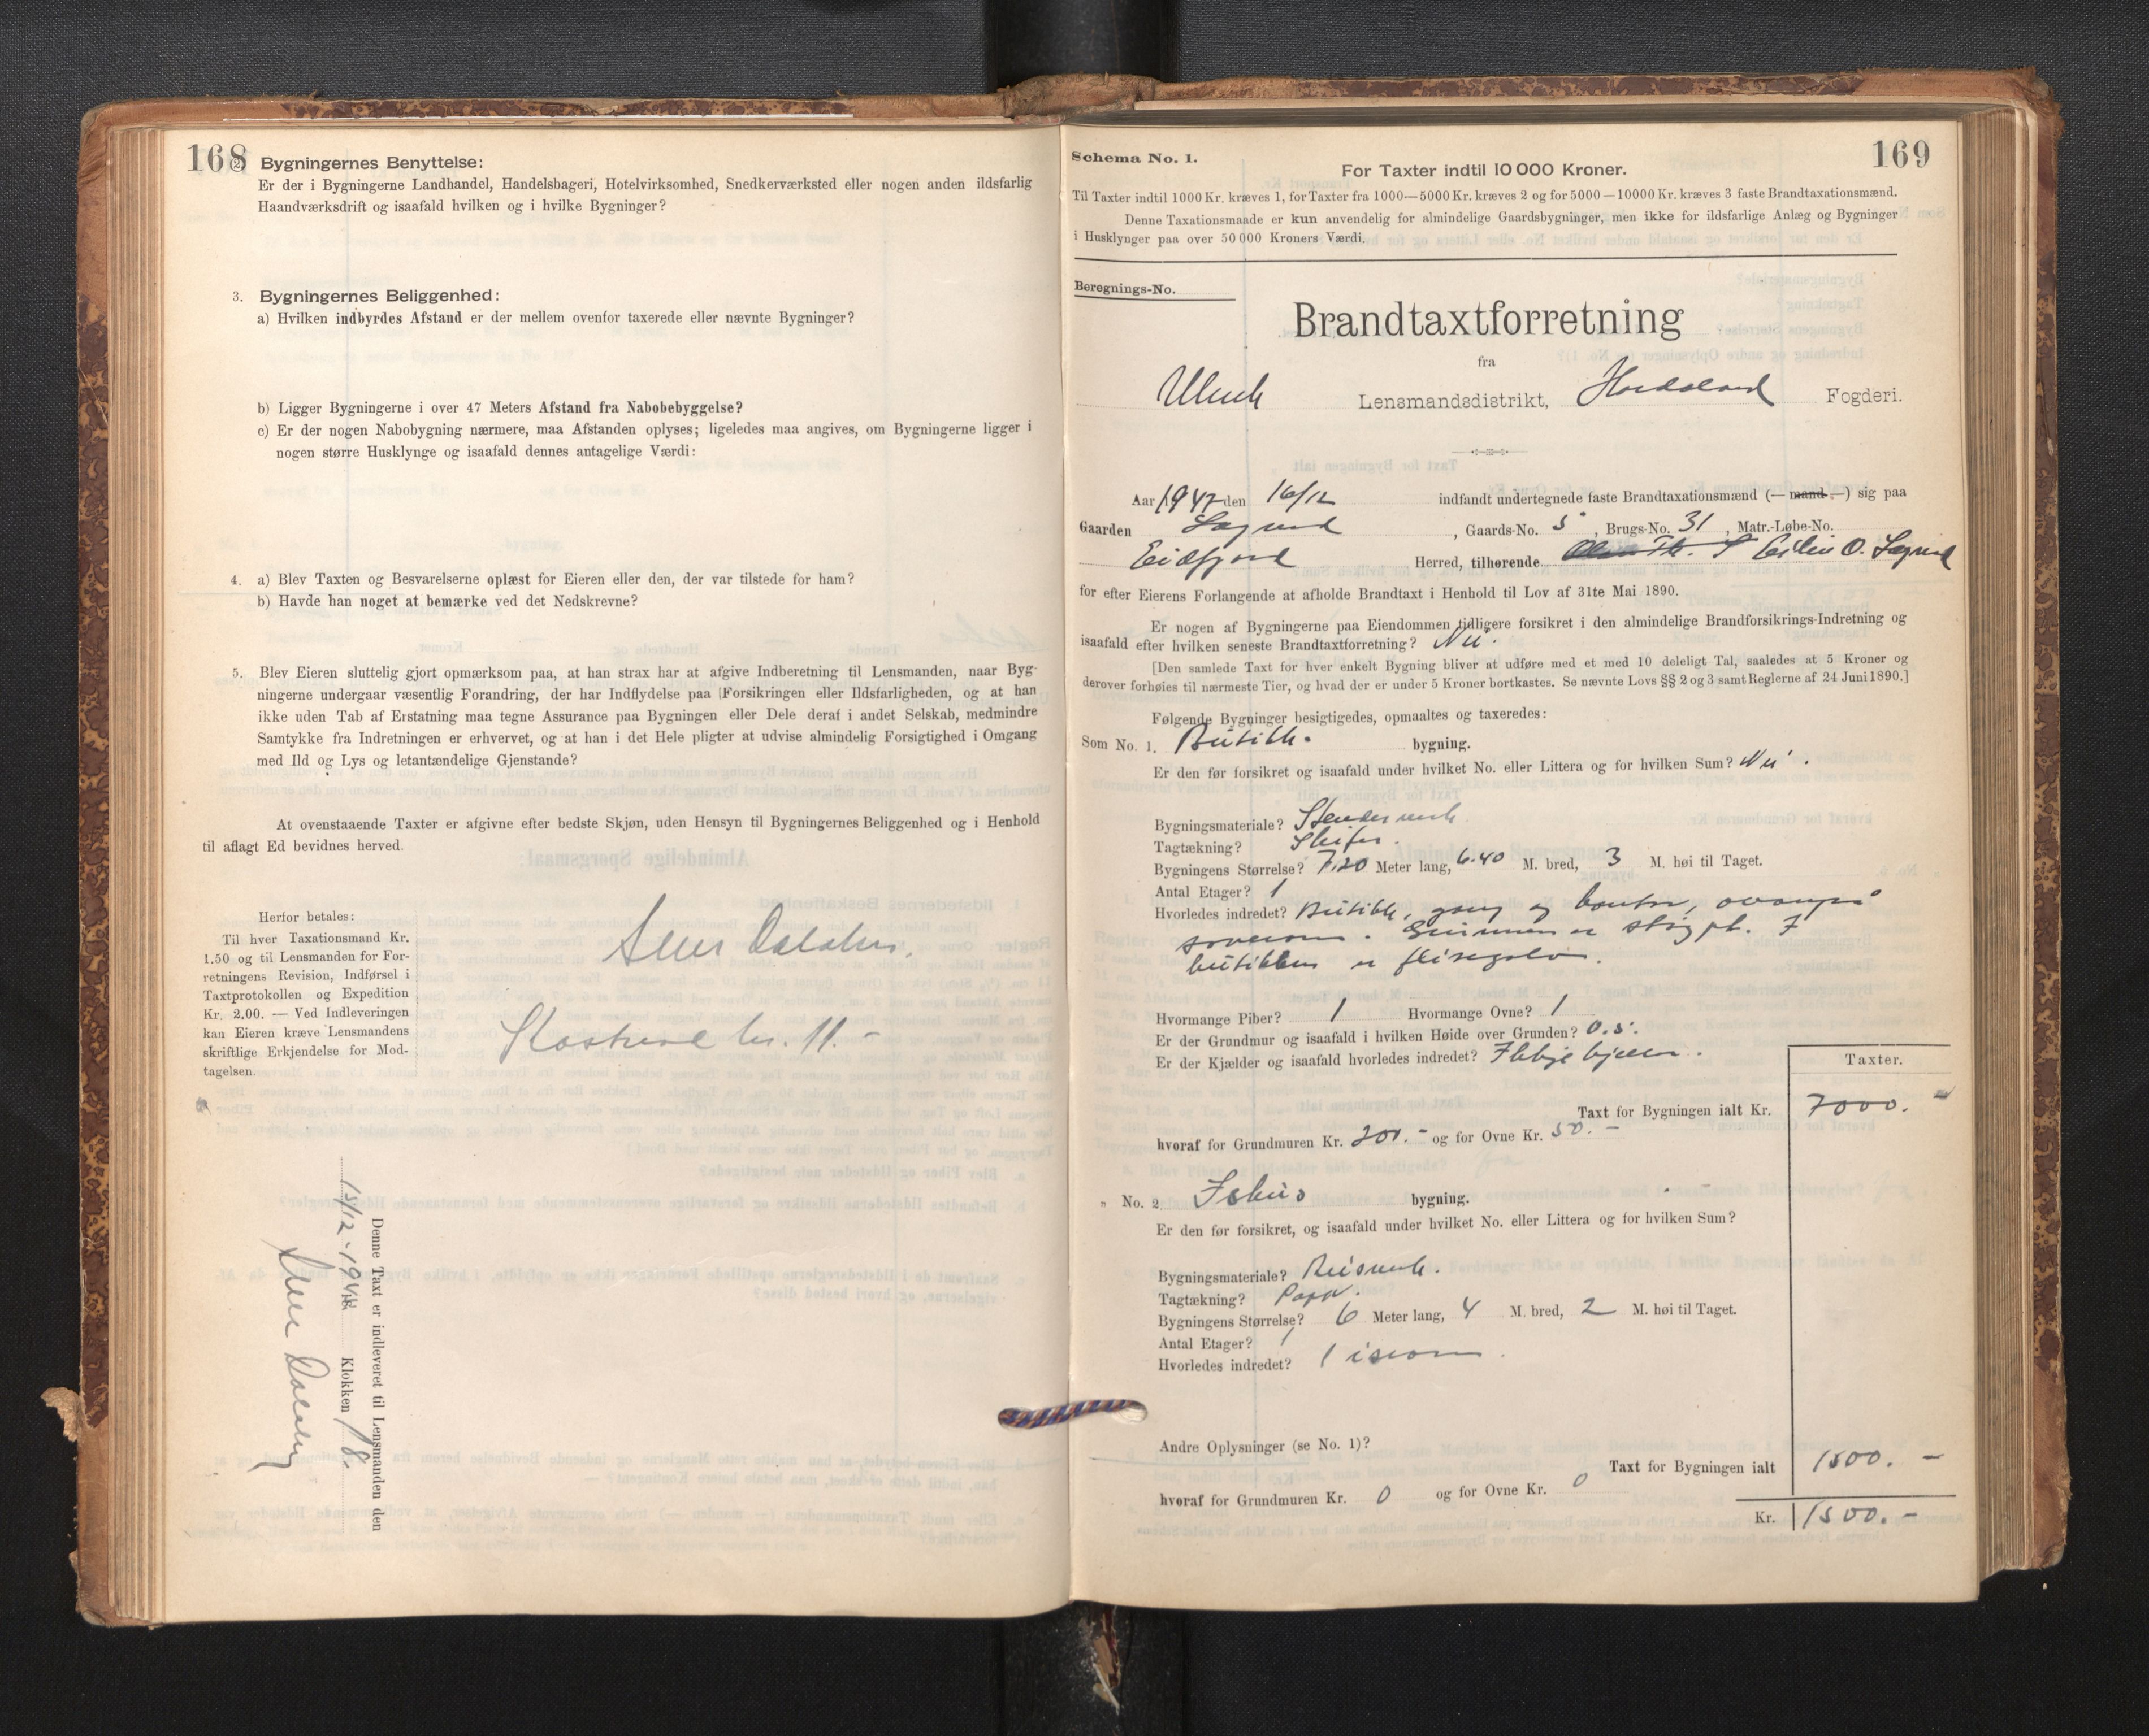 168
2. Bygningernes Benyttelse:
Er der i Bygningerne Landhandel, Handelsbageri, Hotelvirksomhed, Snedkerværksted eller nogen anden ildsfarlig
Haandværksdrift og isaafald hvilken og i hvilke Bygninger?
3. Bygningernes Beliggenhed:
a) Hvilken indbyrdes Afstand er der mellem ovenfor taxerede eller nævnte Bygninger?
b) Ligger Bygningerne i over 47 Meters Afstand fra Nabobebyggelse?
c) Er der nogen Nabobygning nærmere, maa Afstanden oplyses; ligeledes maa angives, om Bygningerne ligger i
nogen større Husklynge og isaafald dennes antagelige Værdi:
4. a) Blev Taxten og Besvarelserne oplæst for Eieren eller den, der var tilstede for ham?
b) Havde han noget at bemærke ved det Nedskrevne?
5. Blev Eieren sluttelig gjort opmærksom paa, at han strax har at afgive Indberetning til Lensmanden, naar Byg-
ningerne undergaar væsentlig Forandring, der har Indflydelse paa Forsikringen eller Ildsfarligheden, og at han
ikke uden Tab af Erstatning maa tegne Assurance paa Bygningen eller Dele deraf i andet Selskab, medmindre
Samtykke fra Indretningen er erhvervet, og at han i det Hele pligter at udvise almindelig Forsigtighed i Omgang
med Ild og Lys og letantændelige Gjenstande?
At ovenstaaende Taxter er afgivne efter bedste Skjøn, uden Hensyn til Bygningernes Beliggenhed og i Henhold
til aflagt Ed bevidnes herved.
Herfor betales:
Til hver Taxationsmand Kr.
1.50 og til Lensmanden for For-
retningens Revision, Indførsel i
Taxtprotokollen og Expedition
Kr. 2.00. — Ved Indleveringen
kan Eieren kræve Lensmandens
skriftlige Erkjendelse for Mod-
tagelsen.
kr. 11.-
Denne Taxt er indleveret til Lensmanden den
Klokken 18.
169
Schema No. 1.
For Taxter indtil 10 000 Kroner.
Til Taxter indtil 1000 Kr. kræves 1, for Taxter fra 1000—5000 Kr. kræves 2 og for 5000—10000 Kr. kræves 3 faste Brandtaxationsmænd.
Denne Taxationsmaade er kun anvendelig for almindelige Gaardsbygninger, men ikke for ildsfarlige Anlæg og Bygninger
i Husklynger paa over 50 000 Kroners Værdi.
Beregnings-No.
Brandtaxtforretning
fra
Ulvik Lensmandsdistrikt, Hordaland Fogderi.
Aar 1947 den 16/12 indfandt undertegnede faste Brandtaxationsmænd (— mand —) sig paa
Gaarden Sagred, Gaards-No. 5, Brugs-No. 31, Matr.-Løbe-No.
Eidfjord Herred, tilhørende O. Sagred
for efter Eierens Forlangende at afholde Brandtaxt i Henhold til Lov af 31te Mai 1890.
Er nogen af Bygningerne paa Eiendommen tidligere forsikret i den almindelige Brandforsikrings-Indretning og
isaafald efter hvilken seneste Brandtaxtforretning? Nei.
[Den samlede Taxt for hver enkelt Bygning bliver at udføre med et med 10 deleligt Tal, saaledes at 5 Kroner og
derover forhøies til nærmeste Tier, og hvad der er under 5 Kroner bortkastes. Se nævnte Lovs §§ 2 og 3 samt Reglerne af 24 Juni 1890.]
Følgende Bygninger besigtigedes, opmaaltes og taxeredes:
Som No. 1. Butikk. bygning.
Er den før forsikret og isaafald under hvilket No. eller Littera og for hvilken Sum? Nei.
Bygningsmateriale? Stenderverk
Tagtækning? Skifer.
Bygningens Størrelse? 7.20 Meter lang, 6.40 M. bred, 3 M. høi til Taget.
Antal Etager? 1
Hvorledes indredet? Butikk, gang og kontor, ovenpå
soverom. er pl. I
butikken er flisegolv.
Hvormange Piber? 1 Hvormange Ovne? 1
Er der Grundmur og isaafald i hvilken Høide over Grunden? 0.5.
Er der Kjælder og isaafald hvorledes indredet? Ikkje kjeller.
Taxter.
Taxt for Bygningen ialt Kr. 7000.-
hvoraf for Grundmuren Kr. 200.- og for Ovne Kr. 50.-
" No. 2. Ishus bygning.
Er den før forsikret, og isaafald under hvilket No. eller Littera og for hvilken Sum?
Bygningsmateriale? Reisverk.
Tagtækning? Papp.
Bygningens Størrelse? 6 Meter lang, 4 M. bred, 2 M. høi til Taget.
Antal Etager? 1
Hvorledes indredet? 1 isrom.
Andre Oplysninger (se No. 1)?
Taxt for Bygningen ialt 1500.-
hvoraf for Grundmuren Kr. 0 og for Ovne Kr. 0
Kr. 1500.-